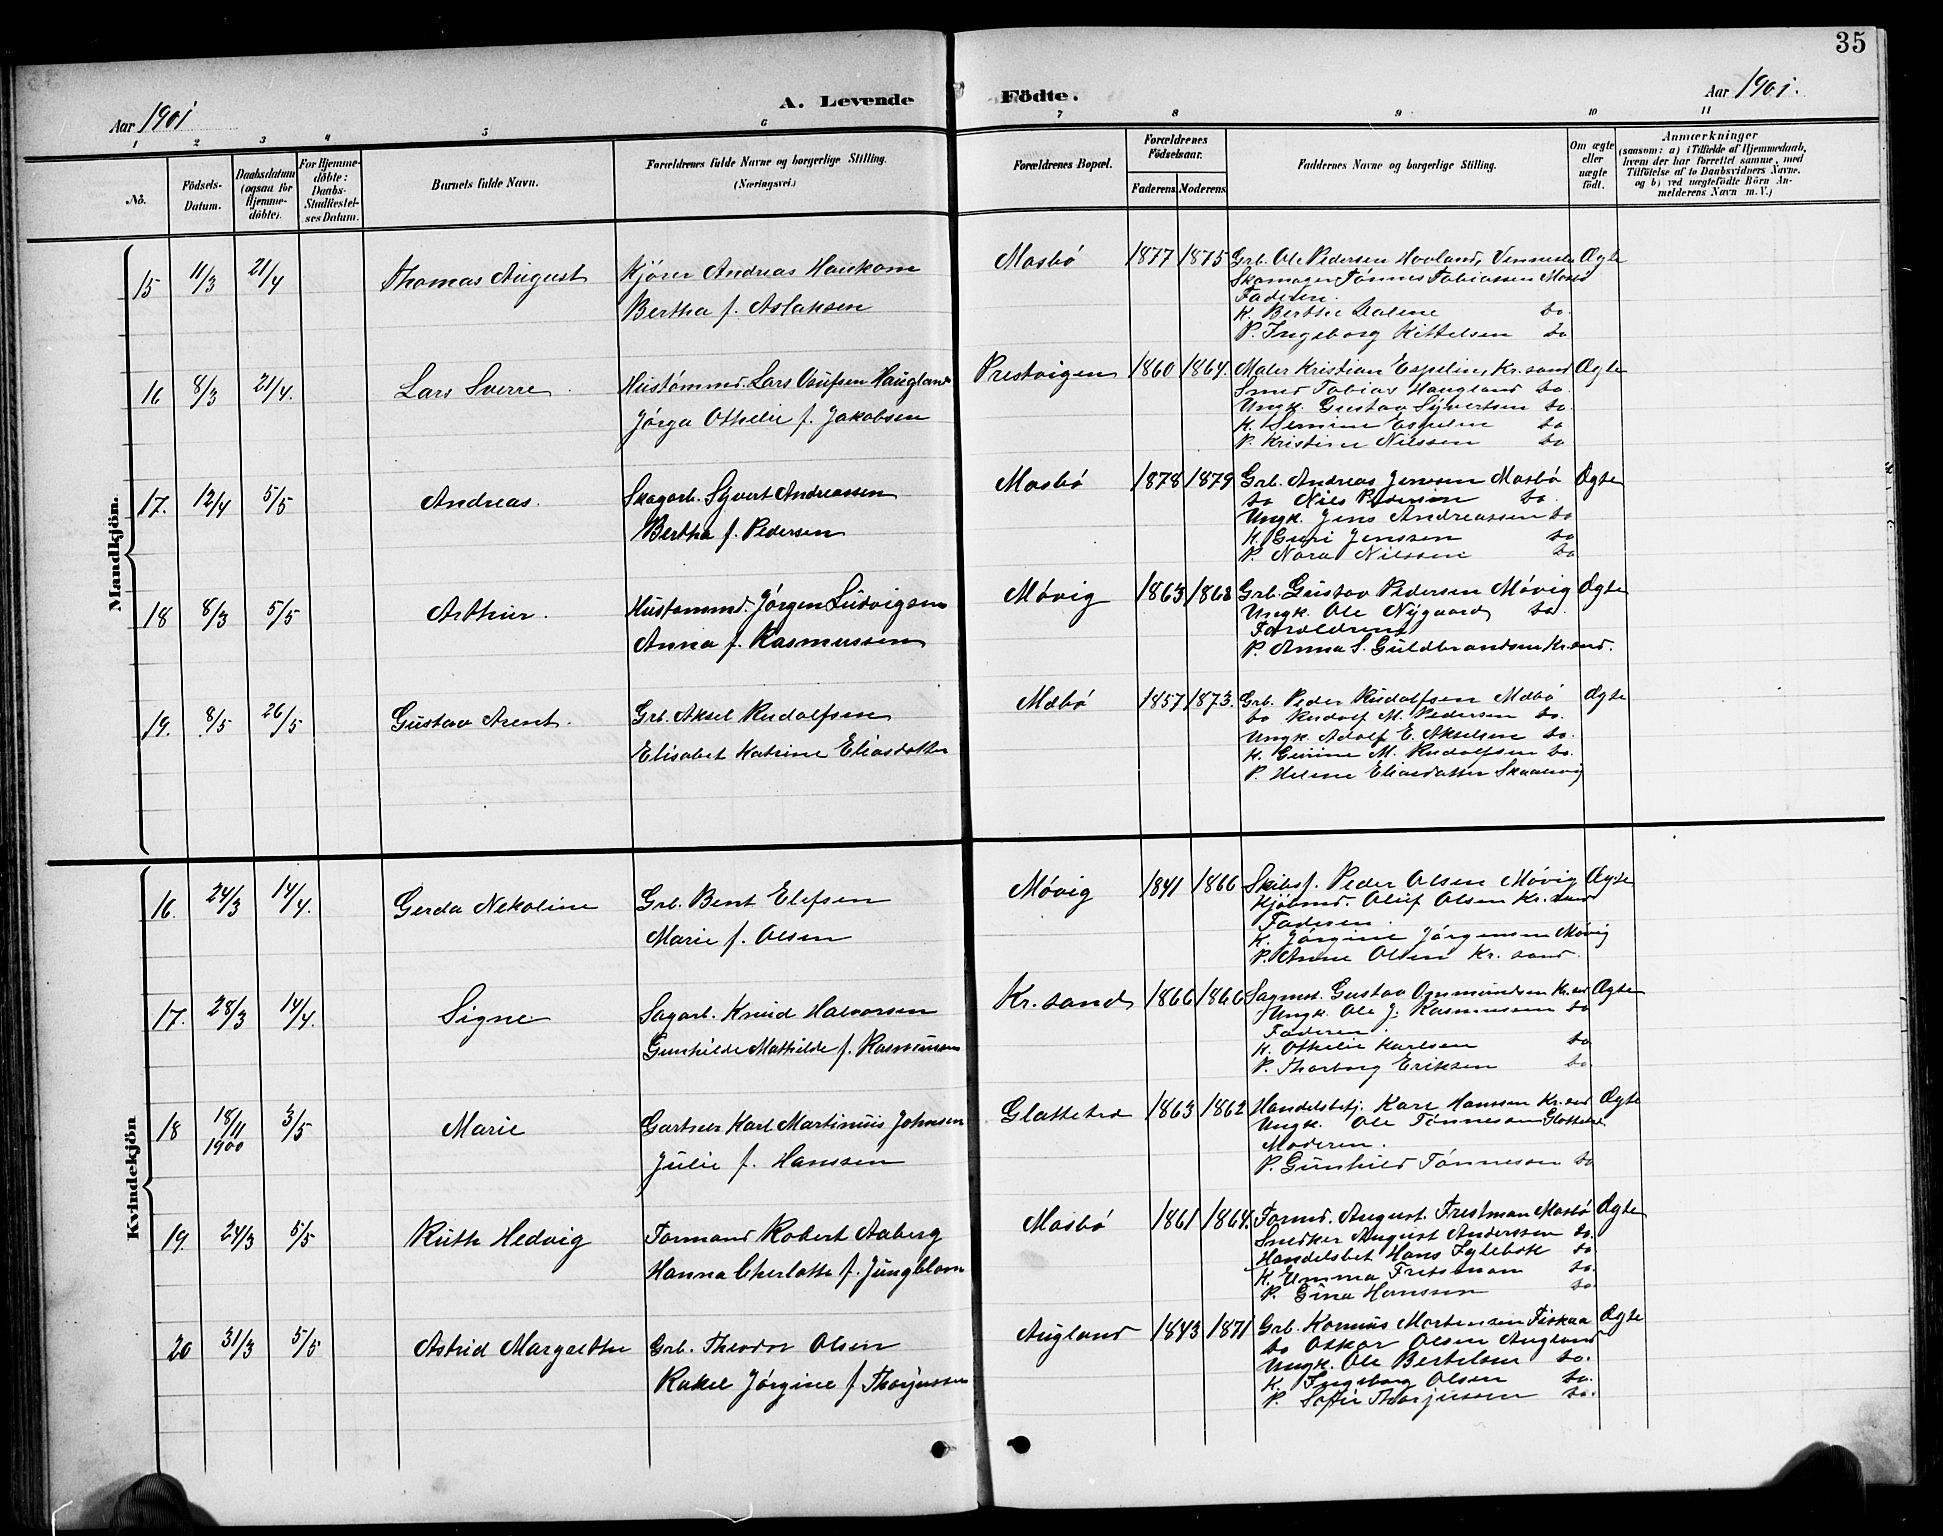 35
Aar 1901
A. Levende Födte.
Aar 1901.
1 2 3 4 5 6 7 8 9 10 11
No.
Födsels-Datum.
Daabsdatum (ogsaa for Hjemme-döbte).
For Hjemme-döbte: Daabs-Stadfæstel-ses Datum.
Barnets fulde Navn.
Forældrenes fulde Navne og borgerlige Stilling.
(Næringsvei.)
Forældrenes Bopæl.
Forældrenes Födselsaar.
Faderens. Moderens.
Faddernes Navne og borgerlige Stilling.
Om ægte eller uægte födt.
Anmærkninger
(saasom: a) i Tilfælde af Hjemmedaab, hvem der har forrettet samme, med Tilföielse af to Daabsvidners Navne. og b) ved uægtefödte Börn An-melderens Navn m. V.)
Mandkjön.
15 11/3 21/4 Thomas August Kjører Andreas Haukom Mosbø 1877 1875 Grb. Ole Pedersen Hovland, Vennesla Ægte
Skomager Tønnes Tobiassen Mosbø
Faderen.
Bertha f. Aslaksen K. Berthe Dalene do.
P. Ingeborg Kittelsen do
16 8/3 21/4. Lars Sverre. Hustømmd. Lars Haugland Prestvigen 1860 1864. Maler Kristian Espelin, Kr.sand Ægte
Smed Tobias Haugland do.
Jørga Othelie f. Jakobsen Ungk. Gustav Syvertsen do.
K. Semine Espelin do
P. Kristine Nilssen do
17. 12/4 5/5 Andreas. Sagarb. Syvert Andreassen Mosbø 1878 1879 Grb. Andreas Jenssen Mosbø Ægte
do Nils Pedersen do.
Bertha f. Pedersen Ungk. Jens Andreassen do
K. Guri Jenssen do
P. Nora Nilssen do
18 8/3 5/5 Arthur. Hustømmd. Jørgen Ludvigsen Møvig 1863 1868 Grb. Gustav Pedersen Møvig Ægte
Ungk. Ole Nygaard do.
Anna f. Rasmussen Forældrene
P. Anna S. Guldbrandsen Kr.sand.
19. 8/5 26/5 Gustav Arent. Grb. Aksel Rudolfsen Mæbø 1857 1873. Grb. Peder Rudolfsen Mæbø Ægte
do Rudolf M. Pedersen do.
Elisabet Katrine Eliasdatter Ungk. Adolf E. Akselsen do.
K. Gurine M. Rudolfsen do.
P. Helene Eliasdatter Skaalevig
Kvindekjön
16. 24/3 14/4. Gerda Nekoline Grb. Bent Elefsen Møvig 1841 1866 Skibsf. Peder Olsen Møvig Ægte
Kjøbmd. Oluf Olsen Kr.sand
Marie f. Olsen Faderen.
K. Jørgine Jørgensen Møvig
P. Anne Olsen Kr. sand.
17. 28/3 14/4. Signe Sagarb. Knud Halvorsen Kr.sand 1866 1866 Sagmst. Gustav Omundsen Kr.sd Ægte
Ungk. Ole J. Rasmussen do
Gunhilde Mathilde f. Rasmussen Faderen.
K. Othelie Karlsen do
P. Thorborg Eriksen do.
18 18/11 1900 3/5 Marie Gartner Karl Martinius Johnsen Glattetre 1863 1862 Handelsbetj. Karl Hanssen Kr.sd Ægte
Ungk. Ole Tønnessen Glattetre
Julie f. Hanssen Moderen.
P. Gunhild Tønnessen do
19. 24/3 5/5 Ruth Hedvig Formand Robert Aaberg Mosbø 1861 1864. Formd. August. Frestman Mosbø Ægte
Snedker August Anderssen do.
Hanna Charlotte f. Jungblom Handelsbet Hans do
K. Emma Fretsman do.
P. Gina Hanssen do.
20 31/3 5/5 Astrid Margrethe Grb. Theodor Olsen Augland 1843 1871 Grb. Mortensen Fiskaa Ægte
do Oskar Olsen Augland
Rakel Jørgine f. Thorjussen Ungk. Ole Bertelsen do.
K. Ingeborg Olsen do
P. Sofie Thorjussen do.